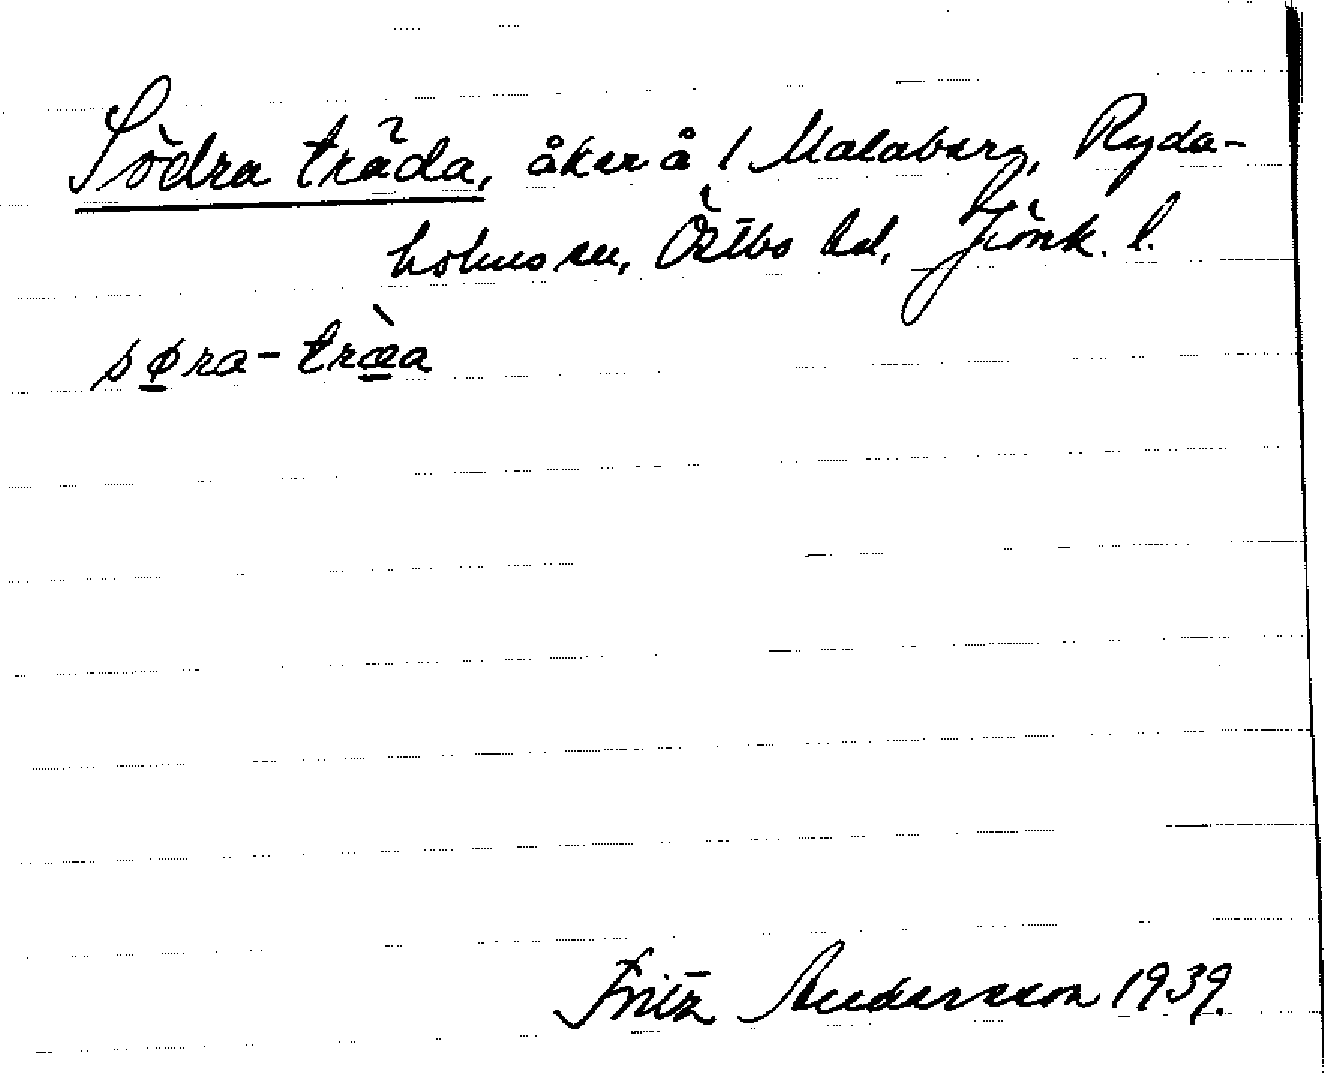 Södra träda, åker å 1 Malaberg, Ryda-
holms sn, Östbo hd, Jönk. l.
søra-træ̀a
Fritz Andersson 1939.